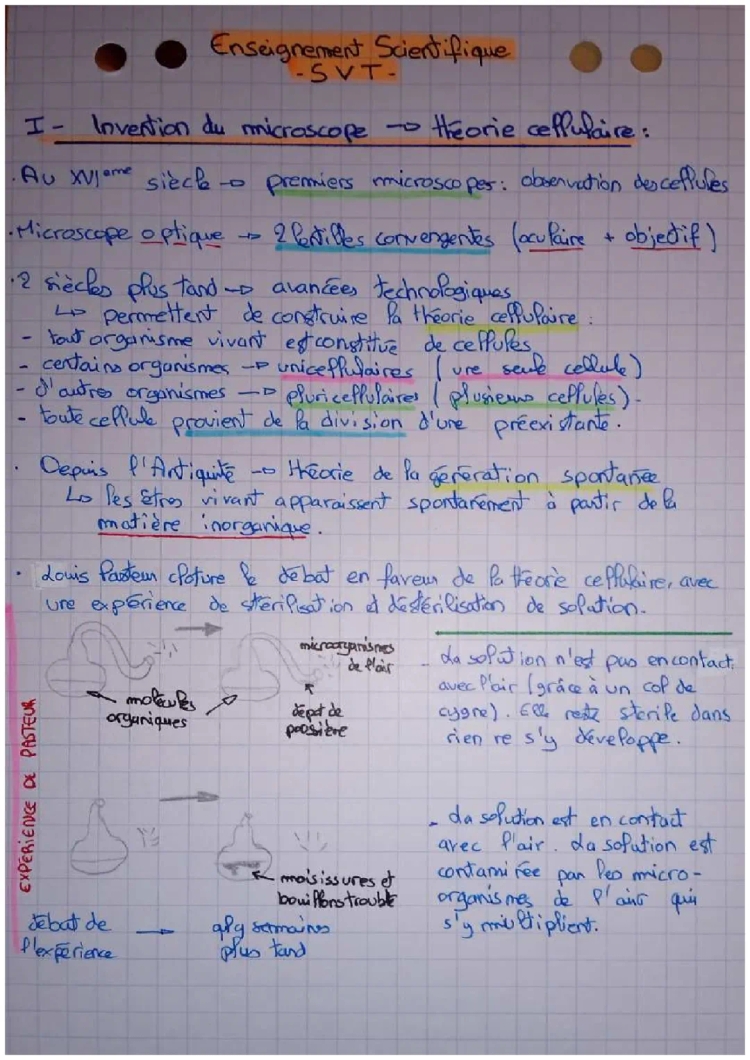 Enseignement Scientifique
- SVT -
I - Invention du microscope → théorie cellulaire :
. Au XVIeme siècle → premiers microscopes : observation des cellules
. Microscope optique → 2 lentilles convergentes (oculaire + objectif)
. 2 siècles plus tard → avancées technologiques
↳ permettent de construire la théorie cellulaire :
- tout organisme vivant est constitué de cellules
- certains organismes → unicellulaires (une seule cellule)
- d'autres organismes → pluricellulaires (plusieurs cellules).
- toute cellule provient de la division d'une préexistante.
. Depuis l'Antiquité → théorie de la génération spontanée
↳ les êtres vivant apparaissent spontanément à partir de la
matière inorganique.
. Louis Pasteur cloture le débat en faveur de la théorie cellulaire, avec
une expérience de stérilisation et déstérilisation de solution.
EXPÉRIENCE DE PASTEUR
microorganismes
de l'air
molécules
organiques
dépôt de
poossière
- La solution n'est pas en contact
avec l'air (grâce à un col de
cygne). Elle reste stérile dans
rien ne s'y développe.
moisissures et
bouillons trouble
début de
l'expérience
→
qlq semaines
plus tard
- La solution est en contact
avec l'air. La solution est
contaminée par les micro-
organismes de l'air qui
s'y multiplient.